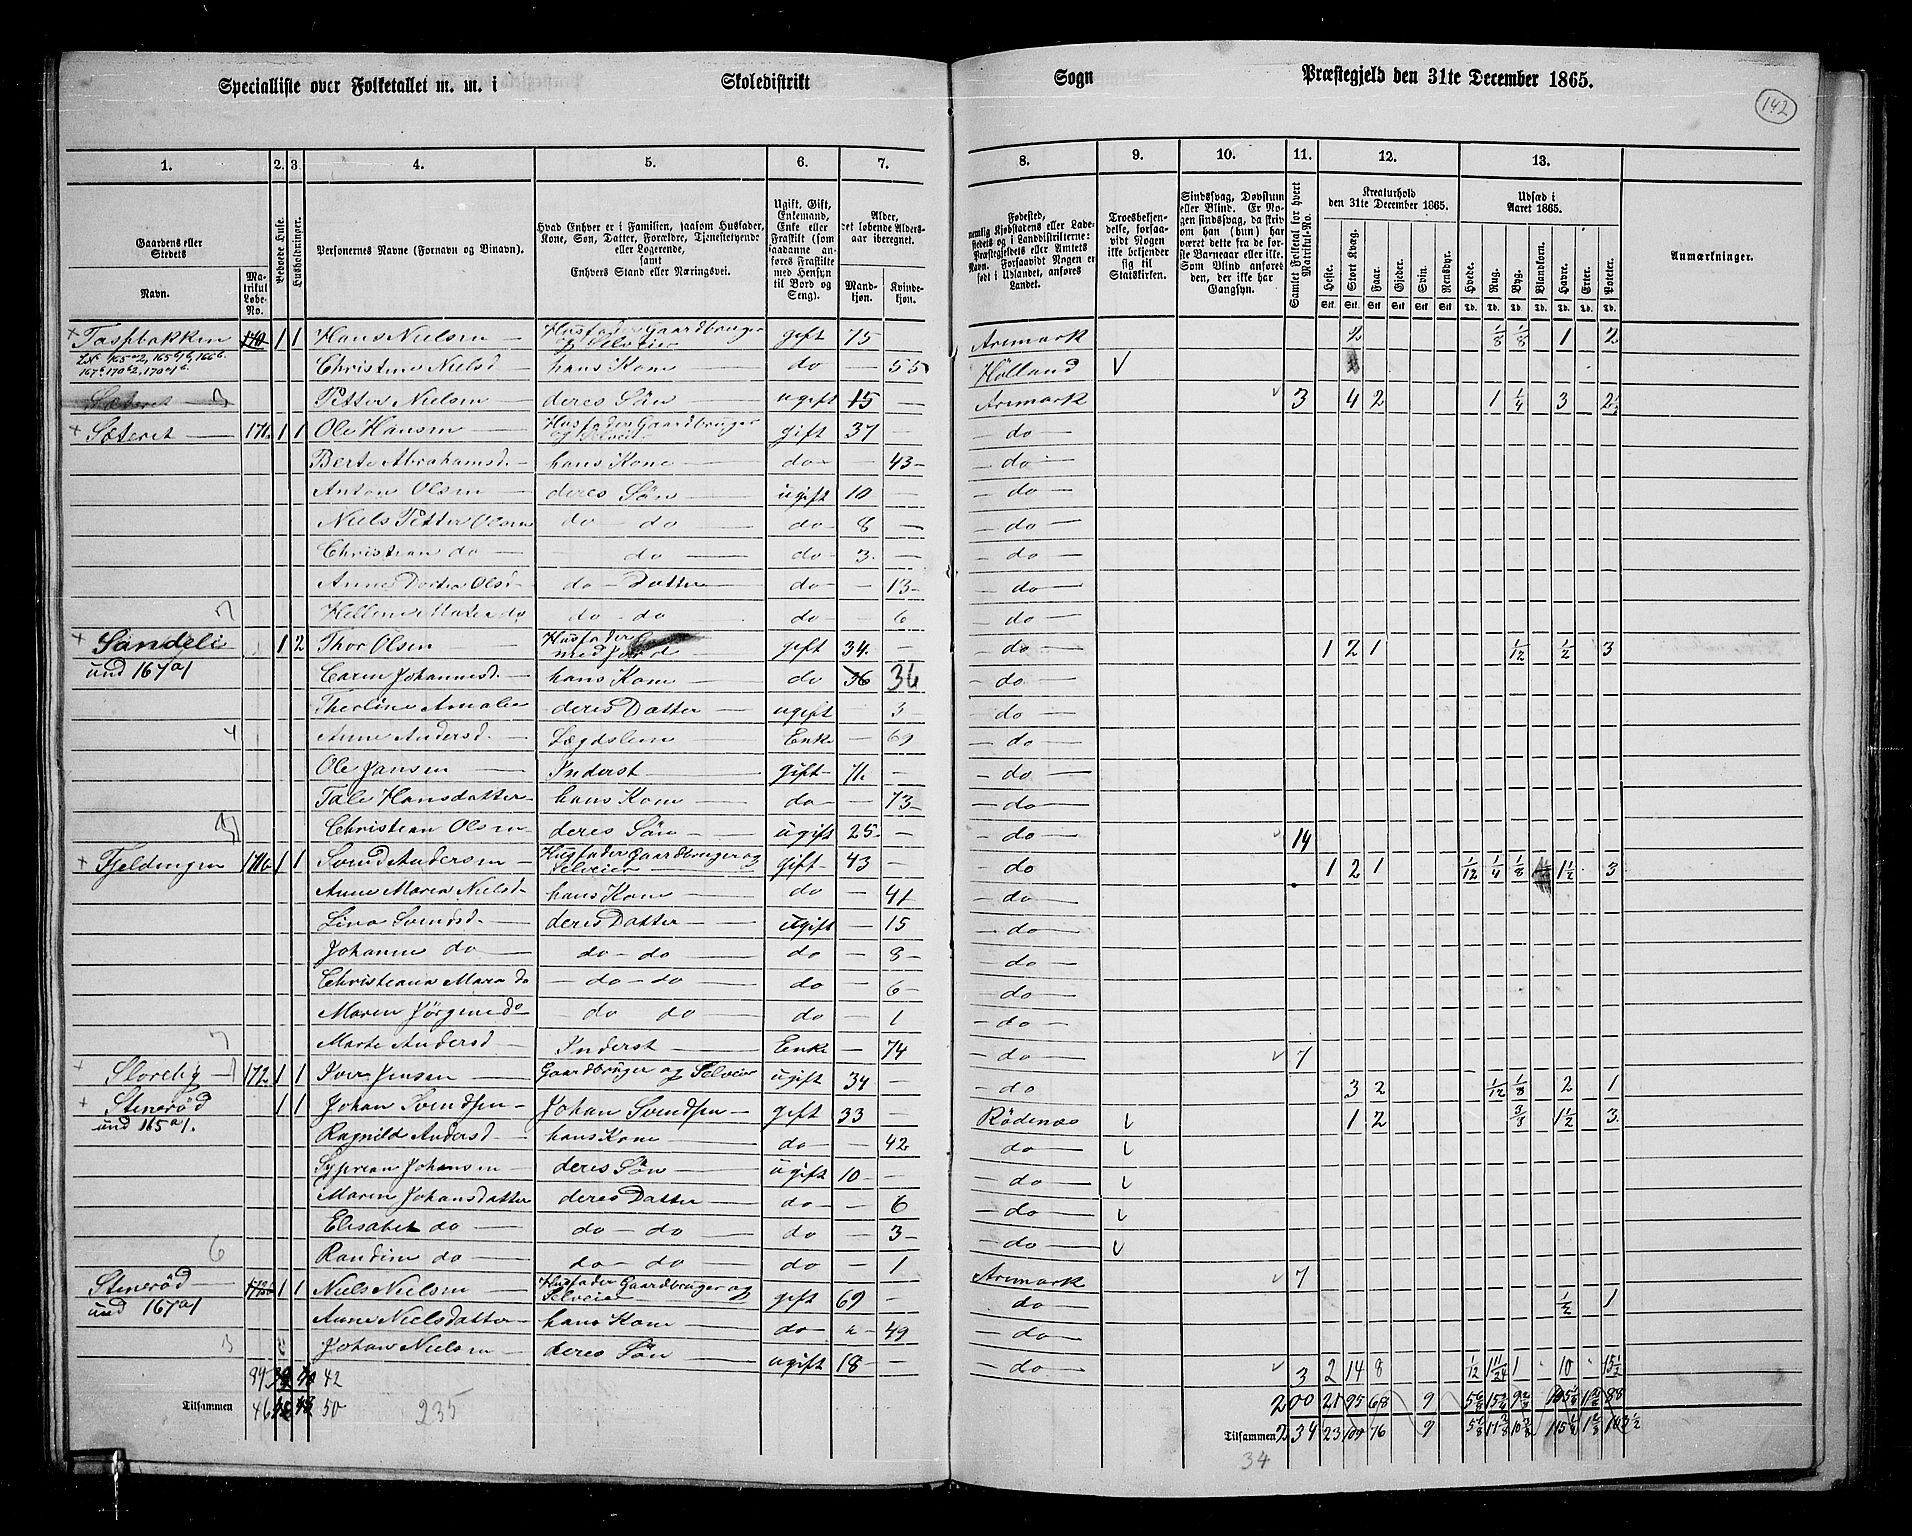 Specialliste over Folketallet m. m. i Skoledistrikt Sogn Præstegjeld den 31te December 1865.
142
1. 2. 3. 4. 5. 6. 7. 8. 9. 10. 11. 12. 13.
Gaardens eller Stedets Navn.
Matrikul Løbe-No.
Beboede Huse.
Husholdninger.
Personernes Navne (Fornavn og Binavn).
Hvad Enhver er i Familien, saasom Husfader, Kone, Søn, Datter, Forældre, Tjenestetyende eller Logerende, samt Enhvers Stand eller Næringsvei.
Ugift, Gift, Enkemand, Enke eller Fraskilt (som saadanne anføres Fraskilte med Hensyn til Bord og Seng).
Alder, det løbende Alders-aar iberegnet.
Mandkjøn. Kvindekjøn.
Fødested, nemlig Kjøbstadens eller Ladestedets og i Landdistrikterne: Præstegjeldets eller Amtets Navn. Forsaavidt Nogen er født i Udlandet, anføres Landet.
Troesbekjendelse, forsaavidt Nogen ikke bekjender sig til Statskirken.
Sindssvag, Døvstum eller Blind. Er Nogen sindssvag, da skrives om han (hun) har været dette fra de første Barneaar eller ikke. Som Blind anføres den, der ikke har Gangsyn.
Samlet Folketal for hvert Matrikul-No.
Kreaturhold den 31te December 1865.
Heste. Stort Kvæg. Faar. Gjeder. Svin. Rensdyr.
Udsæd i Aaret 1865.
Hvede. Rug. Byg. Blandkorn. Havre. Erter. Poteter.
Anmærkninger.
Taspbakken 170 1 1 Hans Nielsen Husfader Gaardbruger og Selveier gift 75 Aremark 2 1/8 1/8 1 2
Christine Nielsd hans Kone do 55 Hølland
Sæteret Petter Nielsen deres Søn ugift 15 Aremark 3 4 2 1 1/4 3 2 1/2
Sæteret 171a 1 1 Ole Hansen Husfader Gaardbruger og Selveier gift 37 do
Berte Abrahamsd. hans Kone do 43 do
Anton Olsen deres Søn ugift 10 do
Niels Petter Olsen do do do 8 do
Christian do do do 3 do
Anne Dortea Olsd. do Datter do 13 do
Hellene Maria do do do do 6 do
Sandeli 1 2 Thor Olsen Husfader med Jord gift 34 do 1 2 1 1/12 1/2 3
und 167a1 Caren Johannesd. hans Kone do 36 36 do
Theoline Amalie deres Datter ugift 3 do
4 Anne Andersd. Lægdslem Enke 69 do
Ole Jansen Inderst gift 71 do
Tale Hansdatter hans Kone do 73 do
Christian Olsen deres Søn ugift 25 do 14
Fjeldningen 171b 1 1 Svend Andersen Husfader Gaardbruger og Selveier gift 43 do 1 2 1 1/12 1/4 1/8 1 1/2 3
Anne Maria Nielsd hans Kone do 41 do
Lina Svendsd. deres Datter ugift 15 do
Johanne do do do do 8 do
Christiana Maria do do do do 6 do
Maren Jørgine do do do do 1 do
7 Marte Andersd Inderst Enke 74 do 7
Storeby 172a 1 1 Iver Jensen Gaardbruger og Selveier ugift 34 do 3 2 1/12 1/8 2 1
Stenerød 1 1 Johan Svendsen Johan Svendsen gift 33 Rødenæs 1 2 3/8 1 1/2 3
und 165a1. Ragnild Andersd hans Kone do 42 do
Syprian Johansen deres Søn ugift 10 do
Maren Johansdatter deres Datter do 6 do
Elisabet do do do do 3 do
6 Randine do do do do 1
Stenerød 172b 1 1 Niels Nielsen Husfader Gaardbruger og Selveier gift 69 Aremark 7
und 167a1 do 1/2 1
Anne Nielsdatter hans Kone do 49 do
3 Johan Nielsen deres Søn ugift 18 do 3 2 14 8 1/12 1 10
42
Tilsammen 46 50 235
200 21 95 68 9 88
Tilsammen 234 23 109 76 9
34